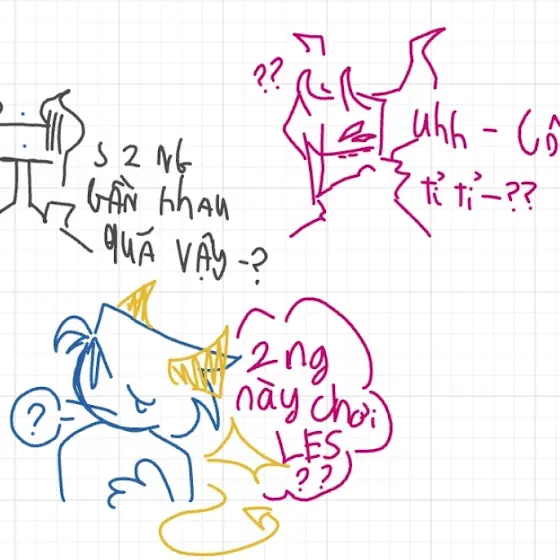 ??
uhh - CÔ
tỉ tỉ -??
s 2 NG
GẦN NHAU
QUÁ VẬY -?
?
2 ng
này chơi
LES
??